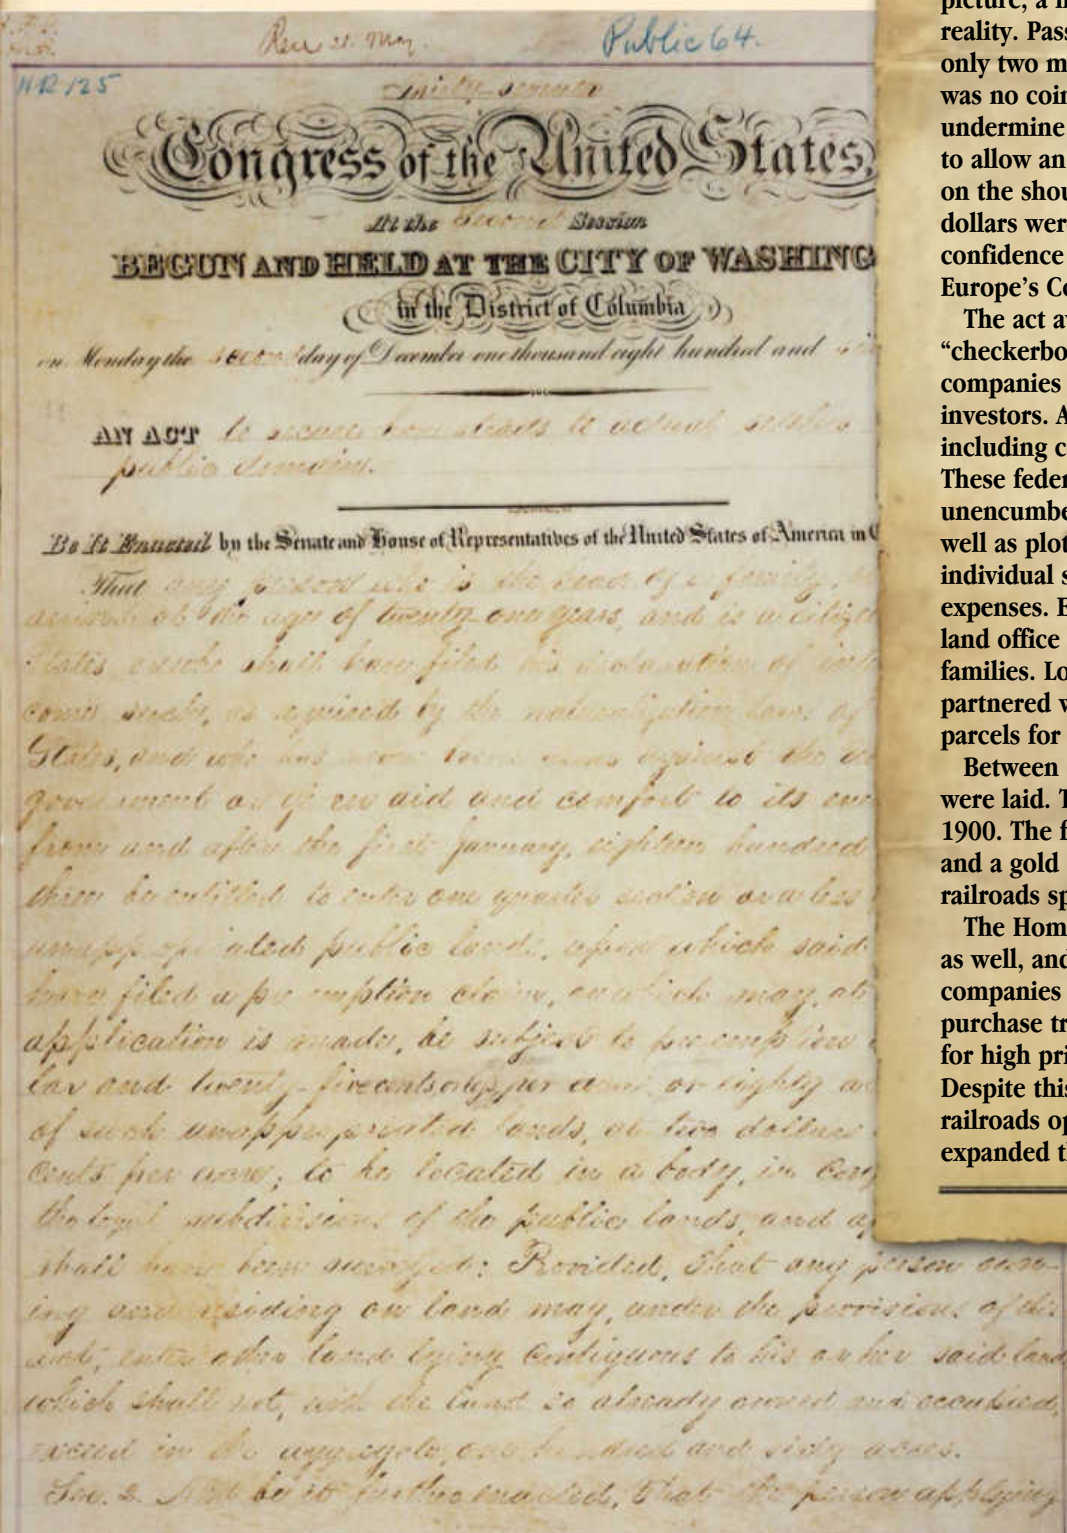 Public 64.
HR 125
Thirty-seventh
Congress of the United States,
At the Second Session
BEGUN AND HELD AT THE CITY OF WASHING
in the District of Columbia
on Monday the second day of December one thousand eight hundred and
AN ACT to secure homesteads to actual settlers
public domain.
Be It Enacted by the Senate and House of Representatives of the United States of America in C
That any person who is the head of a family,
arrived at the age of twenty-one years, and is a citize
States, or who shall have filed his declaration of inte
come such, as required by the naturalization laws of
States, and who has never borne arms against the
government or given aid and comfort to its ene
from and after the first January, eighteen hundred
three be entitled to enter one quarter section or a less
unappropriated public lands, upon which said
have filed a preemption claim, or which may, at
application is made, be subject to preemption
lar and twenty-five cents, or less, per acre; or eighty ac
of such unappropriated lands, at two dollars
cents per acre; to be located in a body, in con
the legal subdivisions of the public lands, and af
shall have been surveyed: Provided, That any person own-
ing and residing on land may, under the provisions of this
act, enter other land lying contiguous to his or her said land,
which shall not, with the land so already owned and occupied,
exceed in the aggregate one hundred and sixty acres.
Sec. 2. And be it further enacted, That the person applying
picture, a
reality. Pass
only two m
was no coin
undermine
to allow an
on the shou
dollars wer
confidence
Europe's Co
The act a
“checkerbo
companies
investors. A
including c
These feder
unencumbe
well as plot
individual s
expenses. E
land office
families. Lo
partnered w
parcels for
Between
were laid. T
1900. The f
and a gold
railroads sp
The Hom
as well, and
companies
purchase tr
for high pri
Despite this
railroads op
expanded t